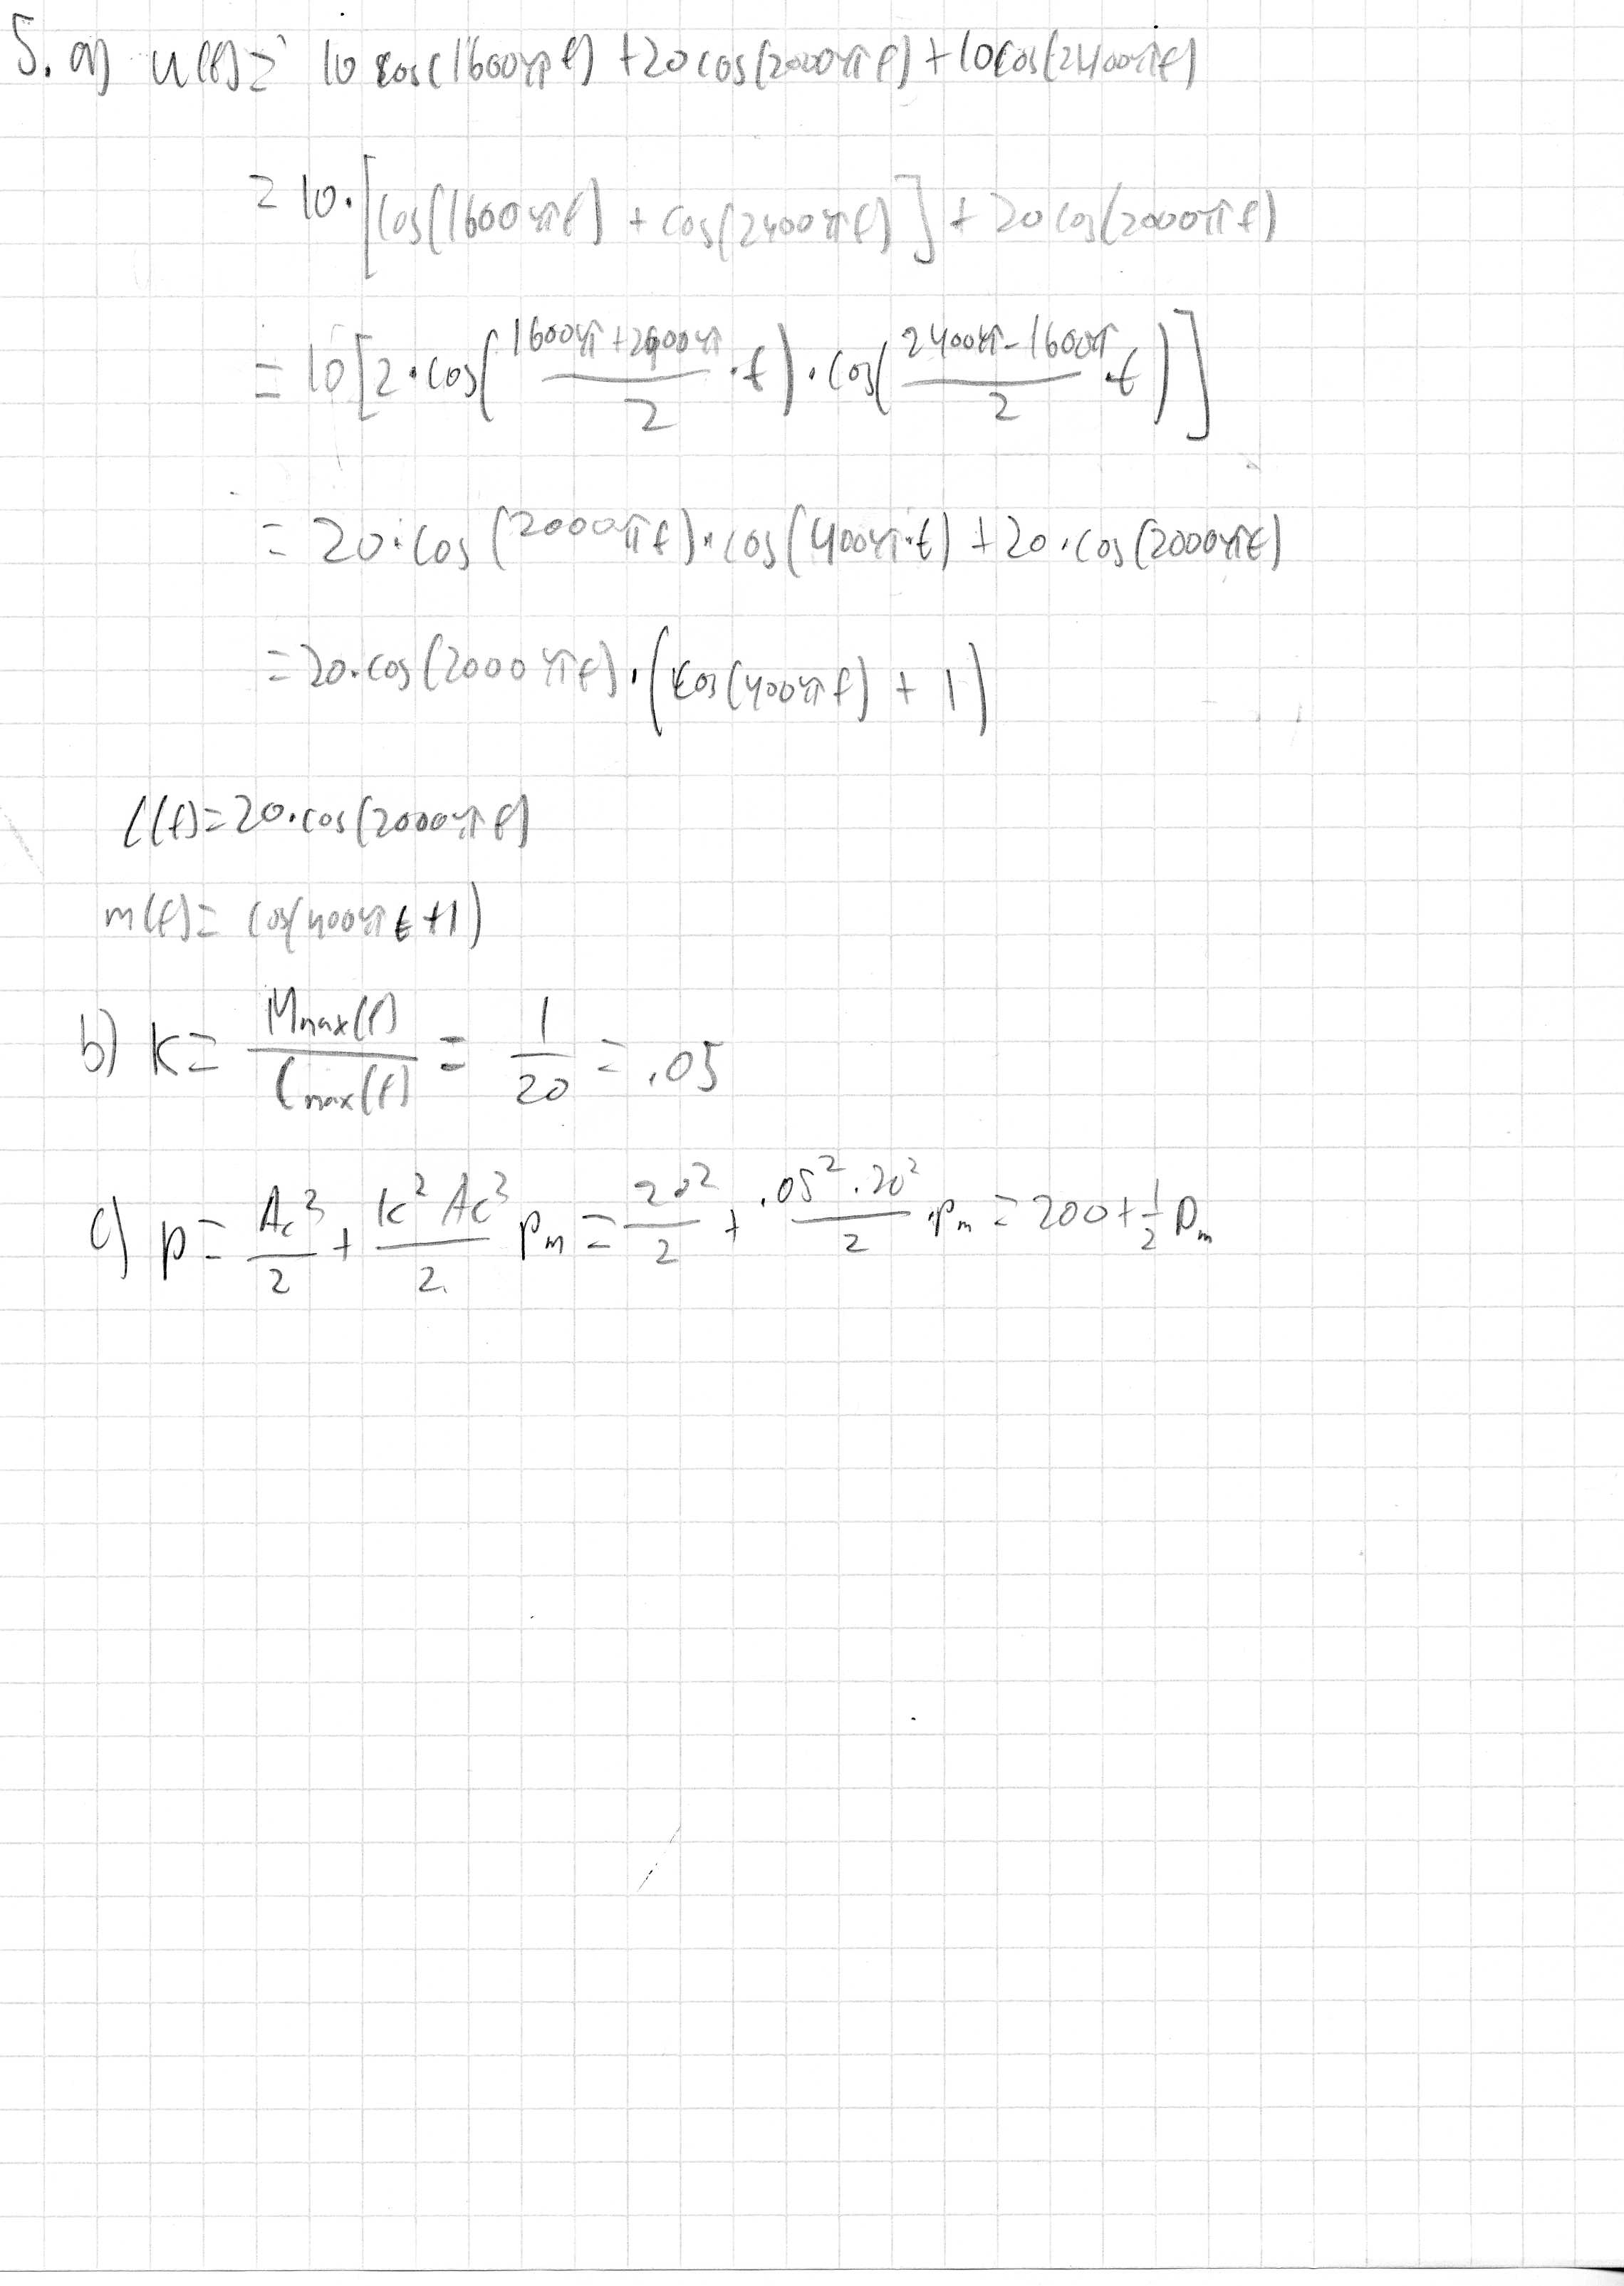 5. a) u(t) = 10 cos(1600πt) + 20 cos(2000πt) + 10 cos(2400πt)
= 10·[cos(1600πt) + cos(2400πt)] + 20 cos(2000πt)
= 10[2·cos((1600π + 2400π)/2 ·t)·cos((2400π - 1600π)/2 ·t)]
= 20·cos(2000πt)·cos(400π·t) + 20·cos(2000πt)
= 20·cos(2000πt)·(cos(400πt) + 1)
c(t) = 20·cos(2000πt)
m(t) = cos(400πt + 1)
b) k = Mmax(t)/Cmax(t) = 1/20 = .05
c) p = Ac²/2 + k² Ac²/2 Pm = 20²/2 + .05²·20²/2 ·Pm = 200 + 1/2 Pm